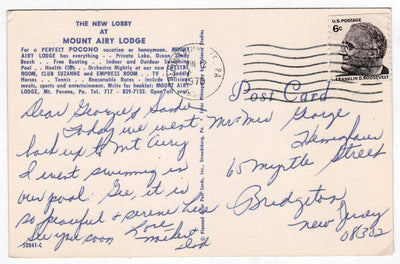 THE NEW LOBBY
AT
MOUNT AIRY LODGE
For a PERFECT POCONO vacation or honeymoon, MOUNT
AIRY LODGE has everything — Private Lake, Ocean Sandy
Beach — Free Boating — Indoor and Outdoor
Pool — Health Clubs — Orchestra Nightly at our new CRYSTAL
ROOM, CLUB SUZANNE and EMPRESS ROOM — TV — Saddle
Horses — Tennis — Reasonable Rates include
meals, sports and entertainment. Write for booklet: MOUNT AIRY
LODGE, Mt. Pocono, Pa. Tel. 717 - 839-7133. Open all year
Dear George & Sandy
Today we went
back up to Mt Airy
I went swimming in
our pool. Gee, it is
so peaceful & serene here
See you soon Love
52841-C
PA
U.S. POSTAGE
6¢
FRANKLIN D. ROOSEVELT
Post Card
Mr & Mrs George
65 Myrtle Street
Bridgeton
New Jersey
08302